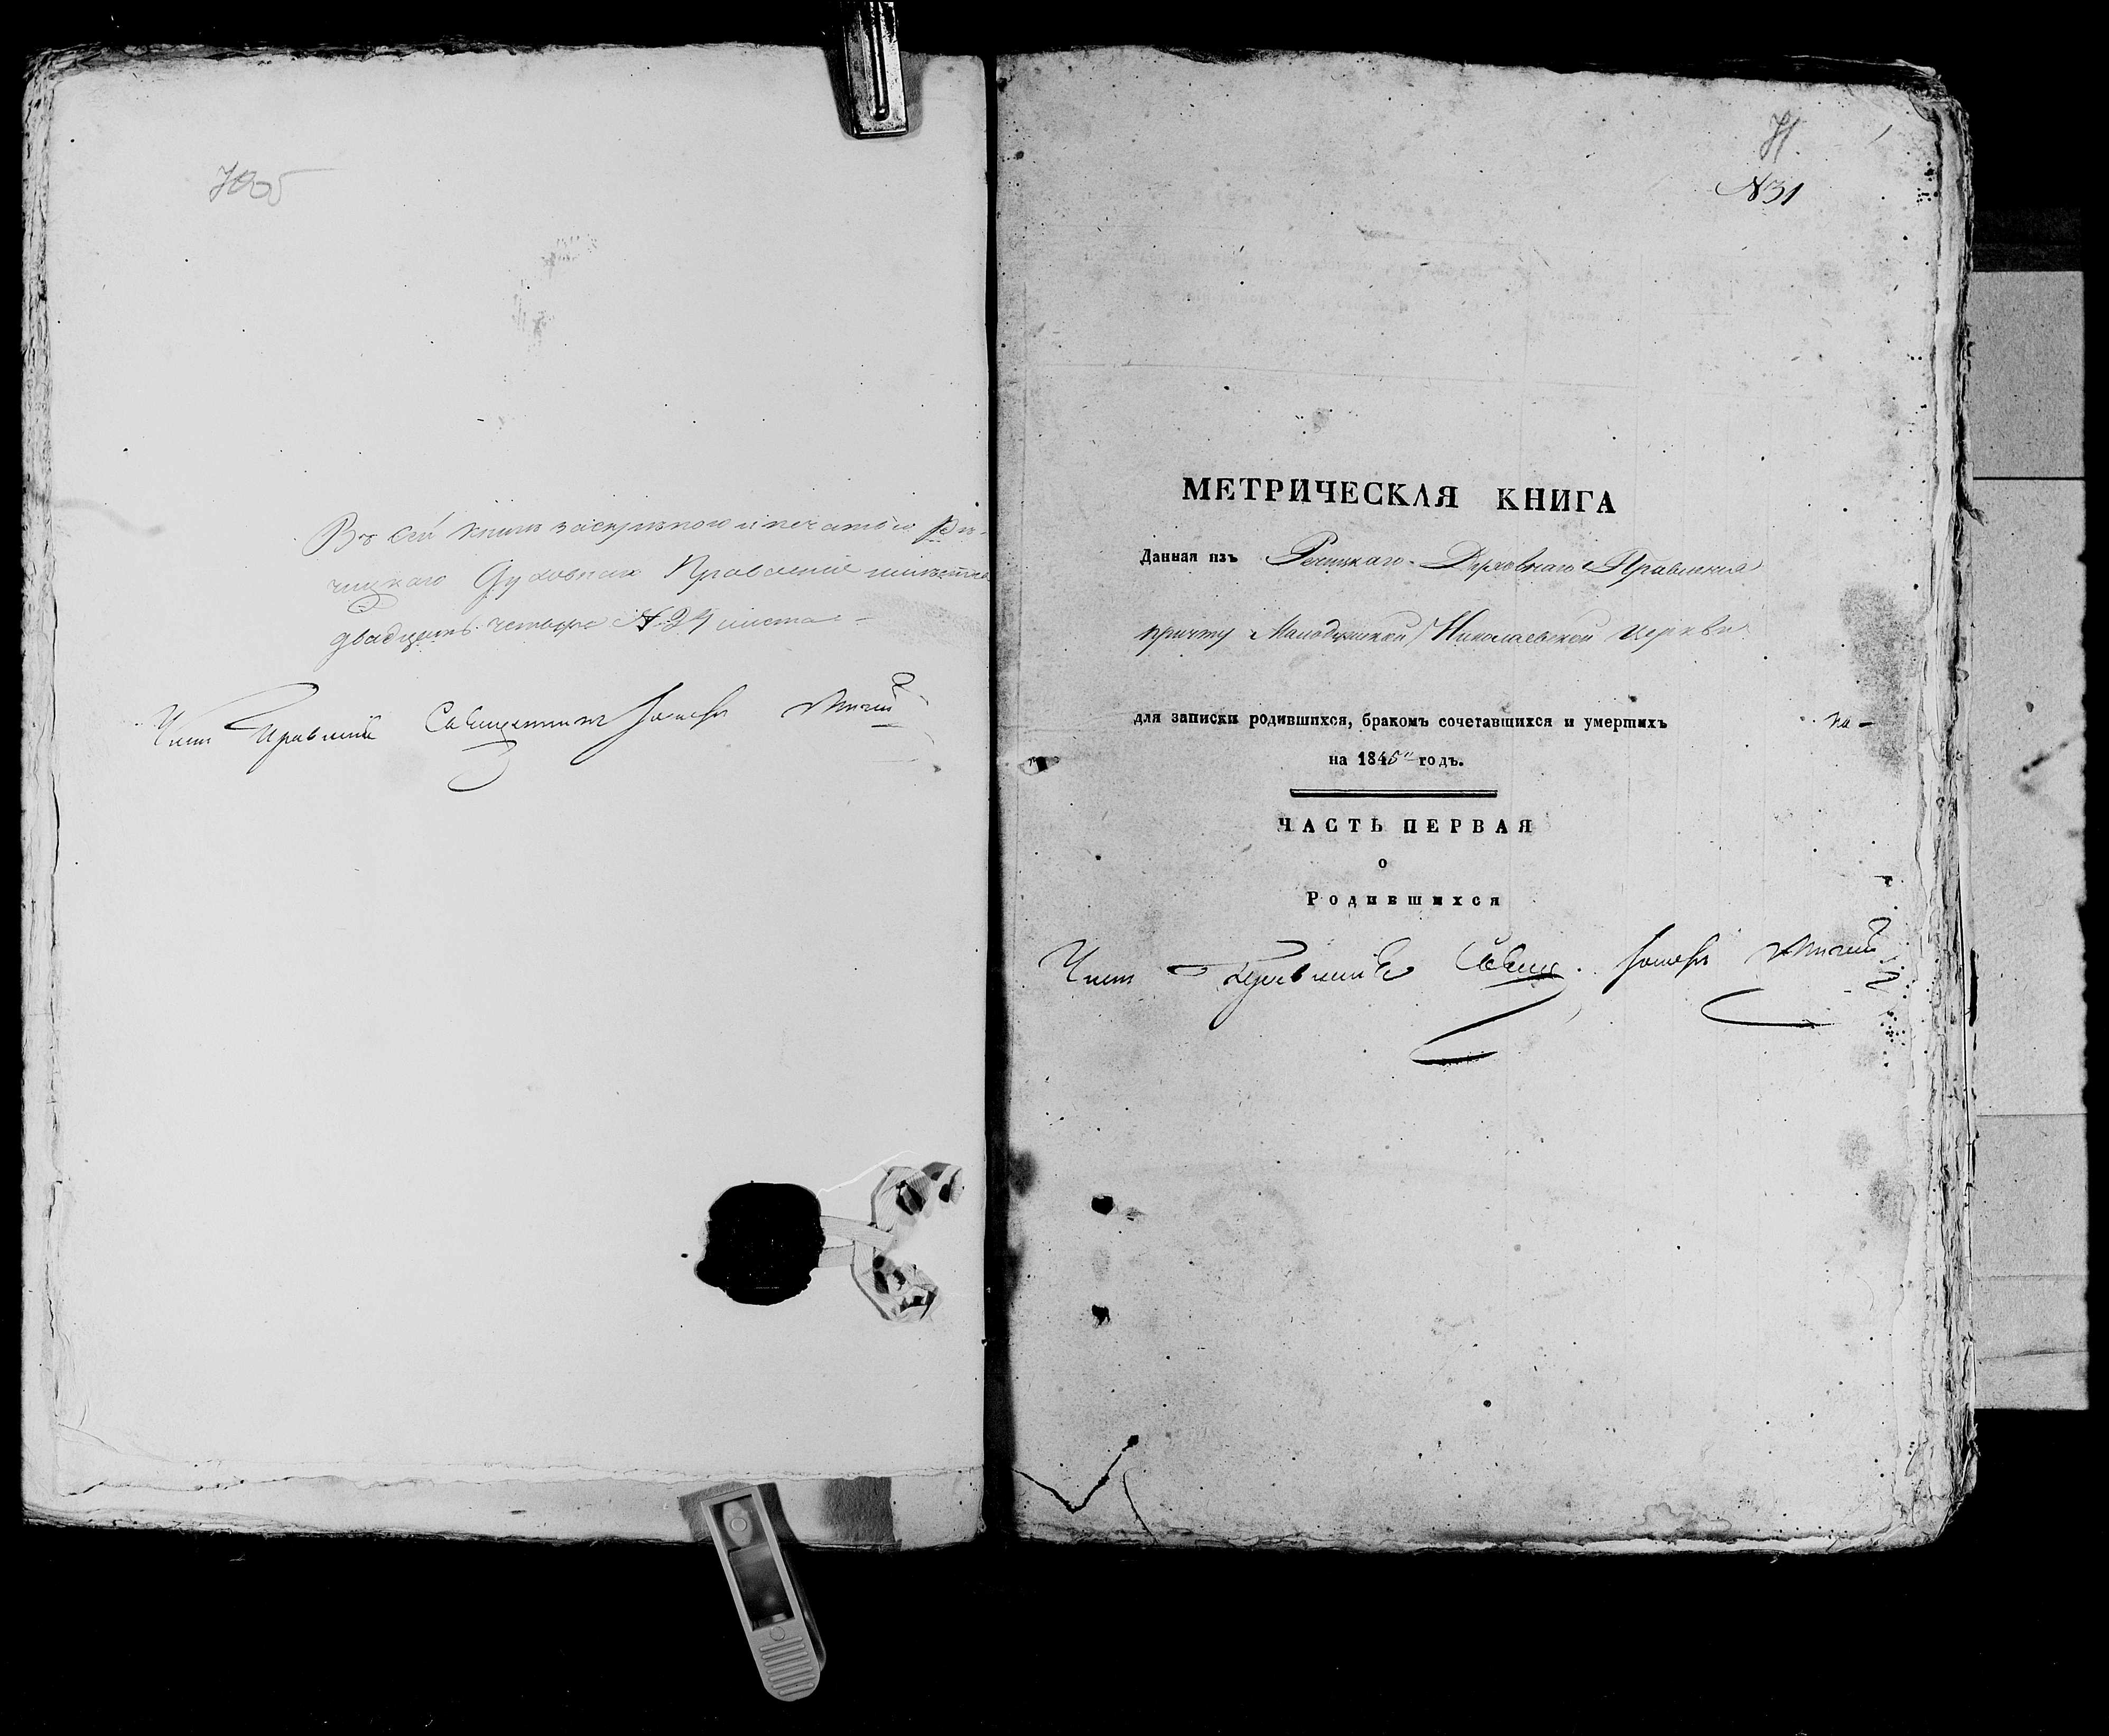 Въ сей книгѣ за скрѣпою и печатью Рѣ-
чицкаго Духовнаго Правленія
двадцать четыре № 24 листа
Членъ Правленія Священникъ Іосифъ
№31
МЕТРИЧЕСКАЯ КНИГА
Данная изъ Речицкаго Духовнаго Правленія
причту Малодушской Николаевской церкви
для записки родившихся, бракомъ сочетавшихся и умершихъ на
на 1845й годъ.
ЧАСТЬ ПЕРВАЯ
о
Родившихся
Членъ Правленія Свящ. Іосифъ